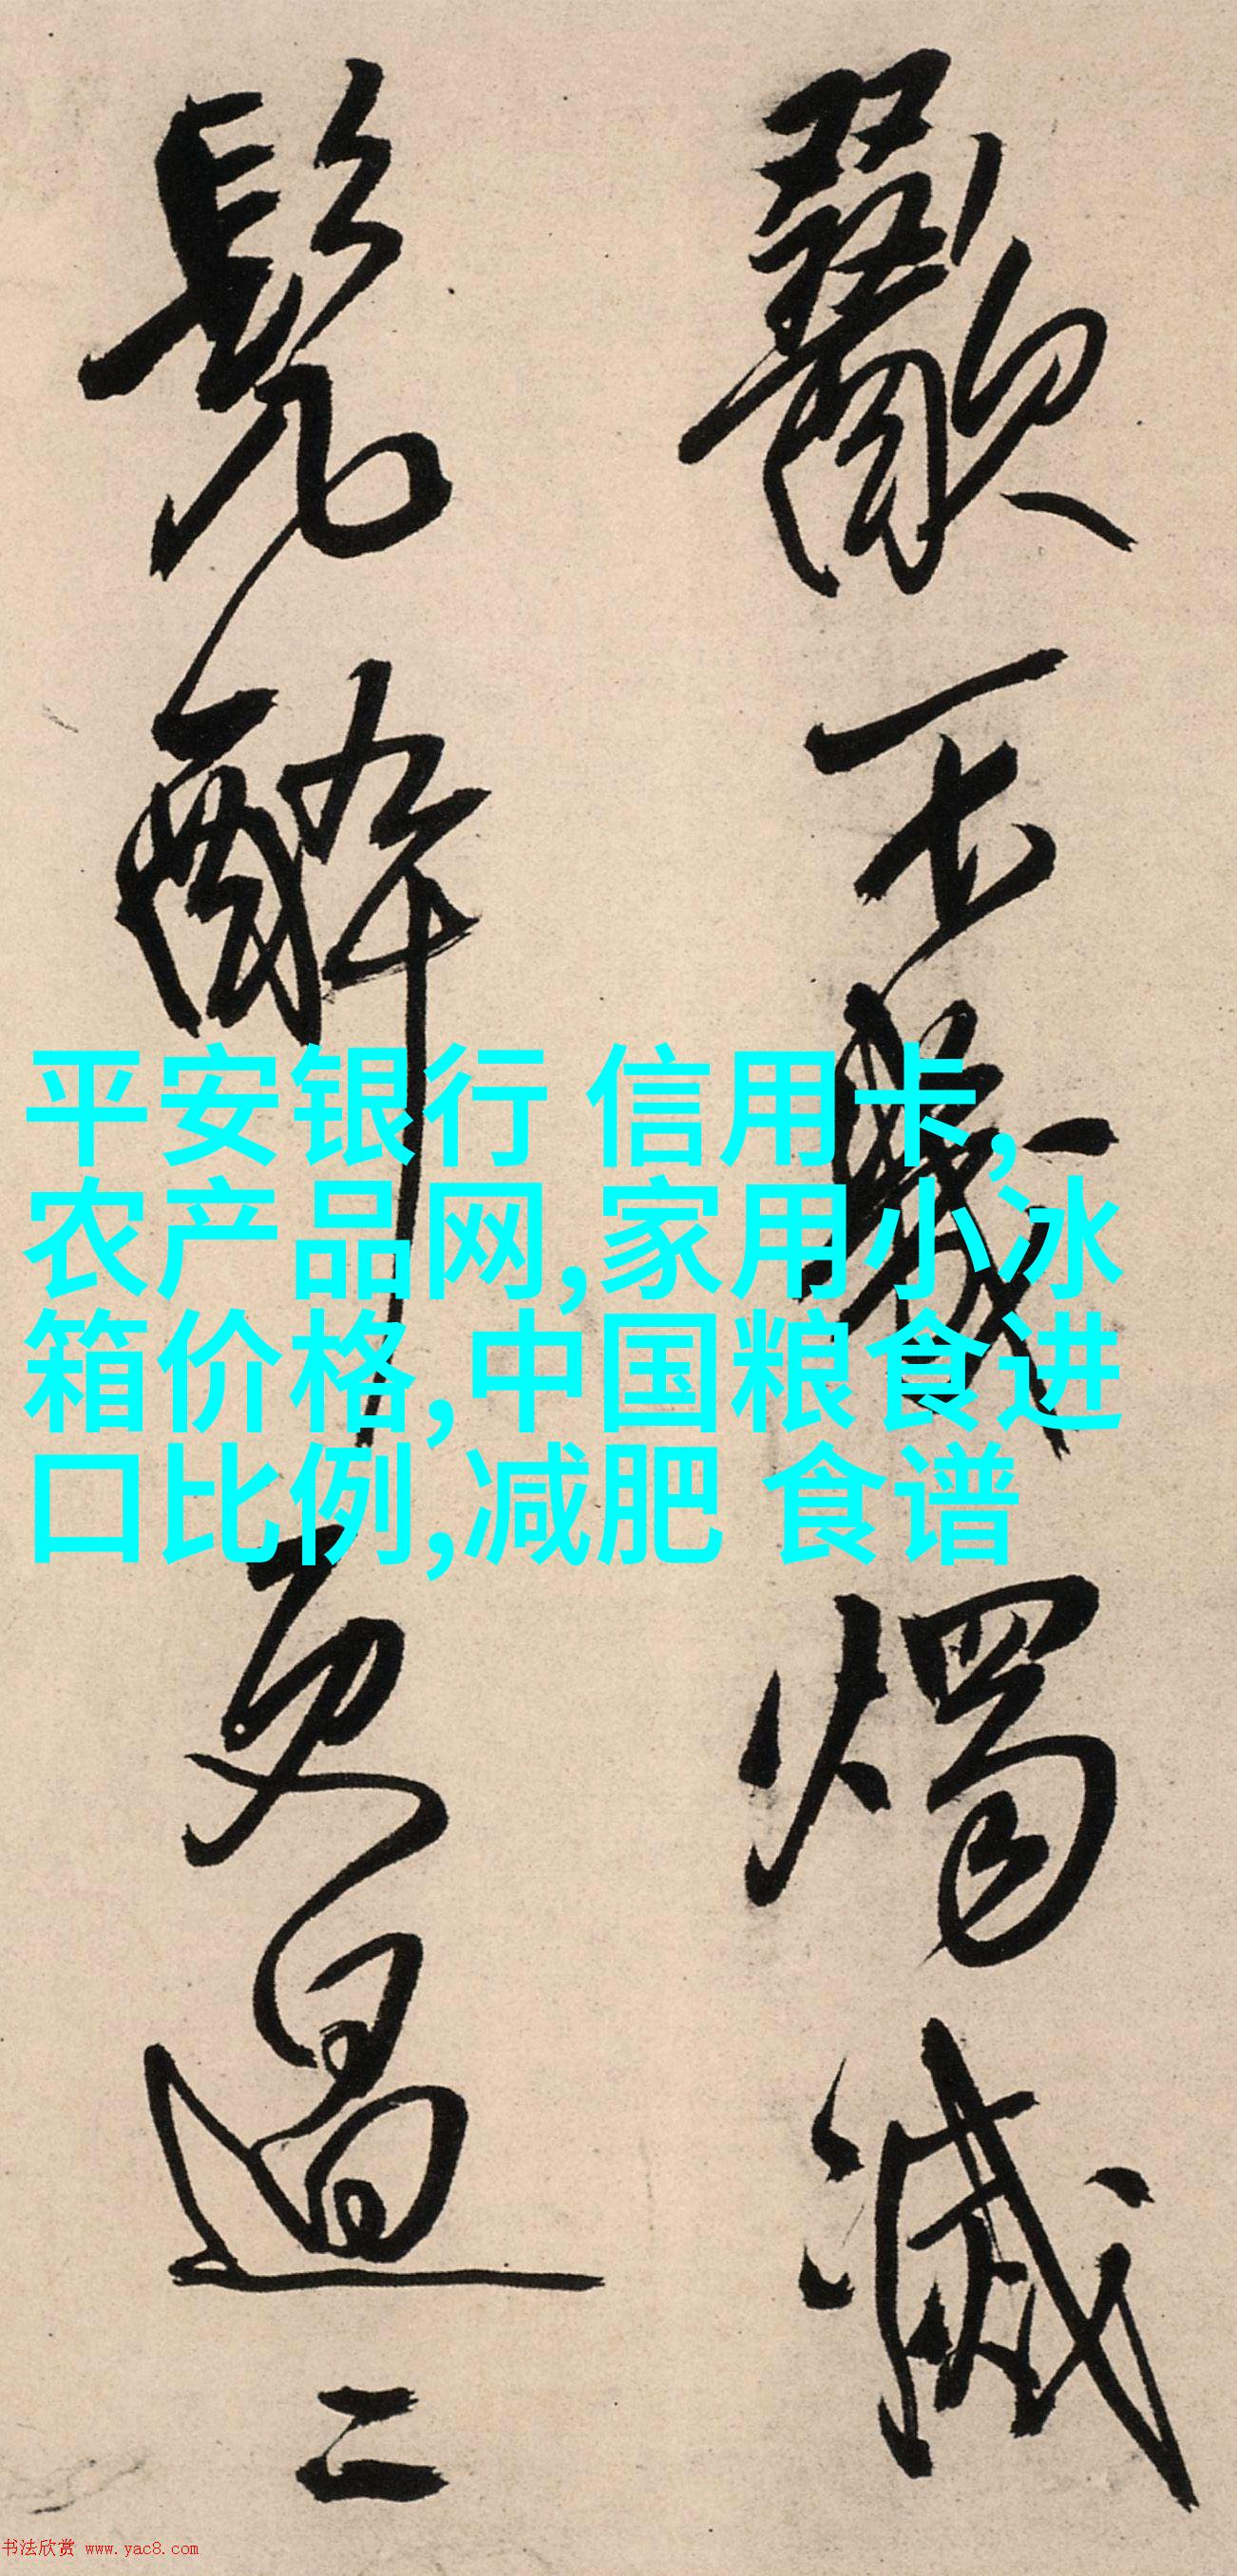 歠不驚燭滅
鬓醉更過二
平安银行 信用卡,
农产品网,家用小冰
箱价格,中国粮食进
口比例,减肥 食谱
书法欣赏 www.yac8.com